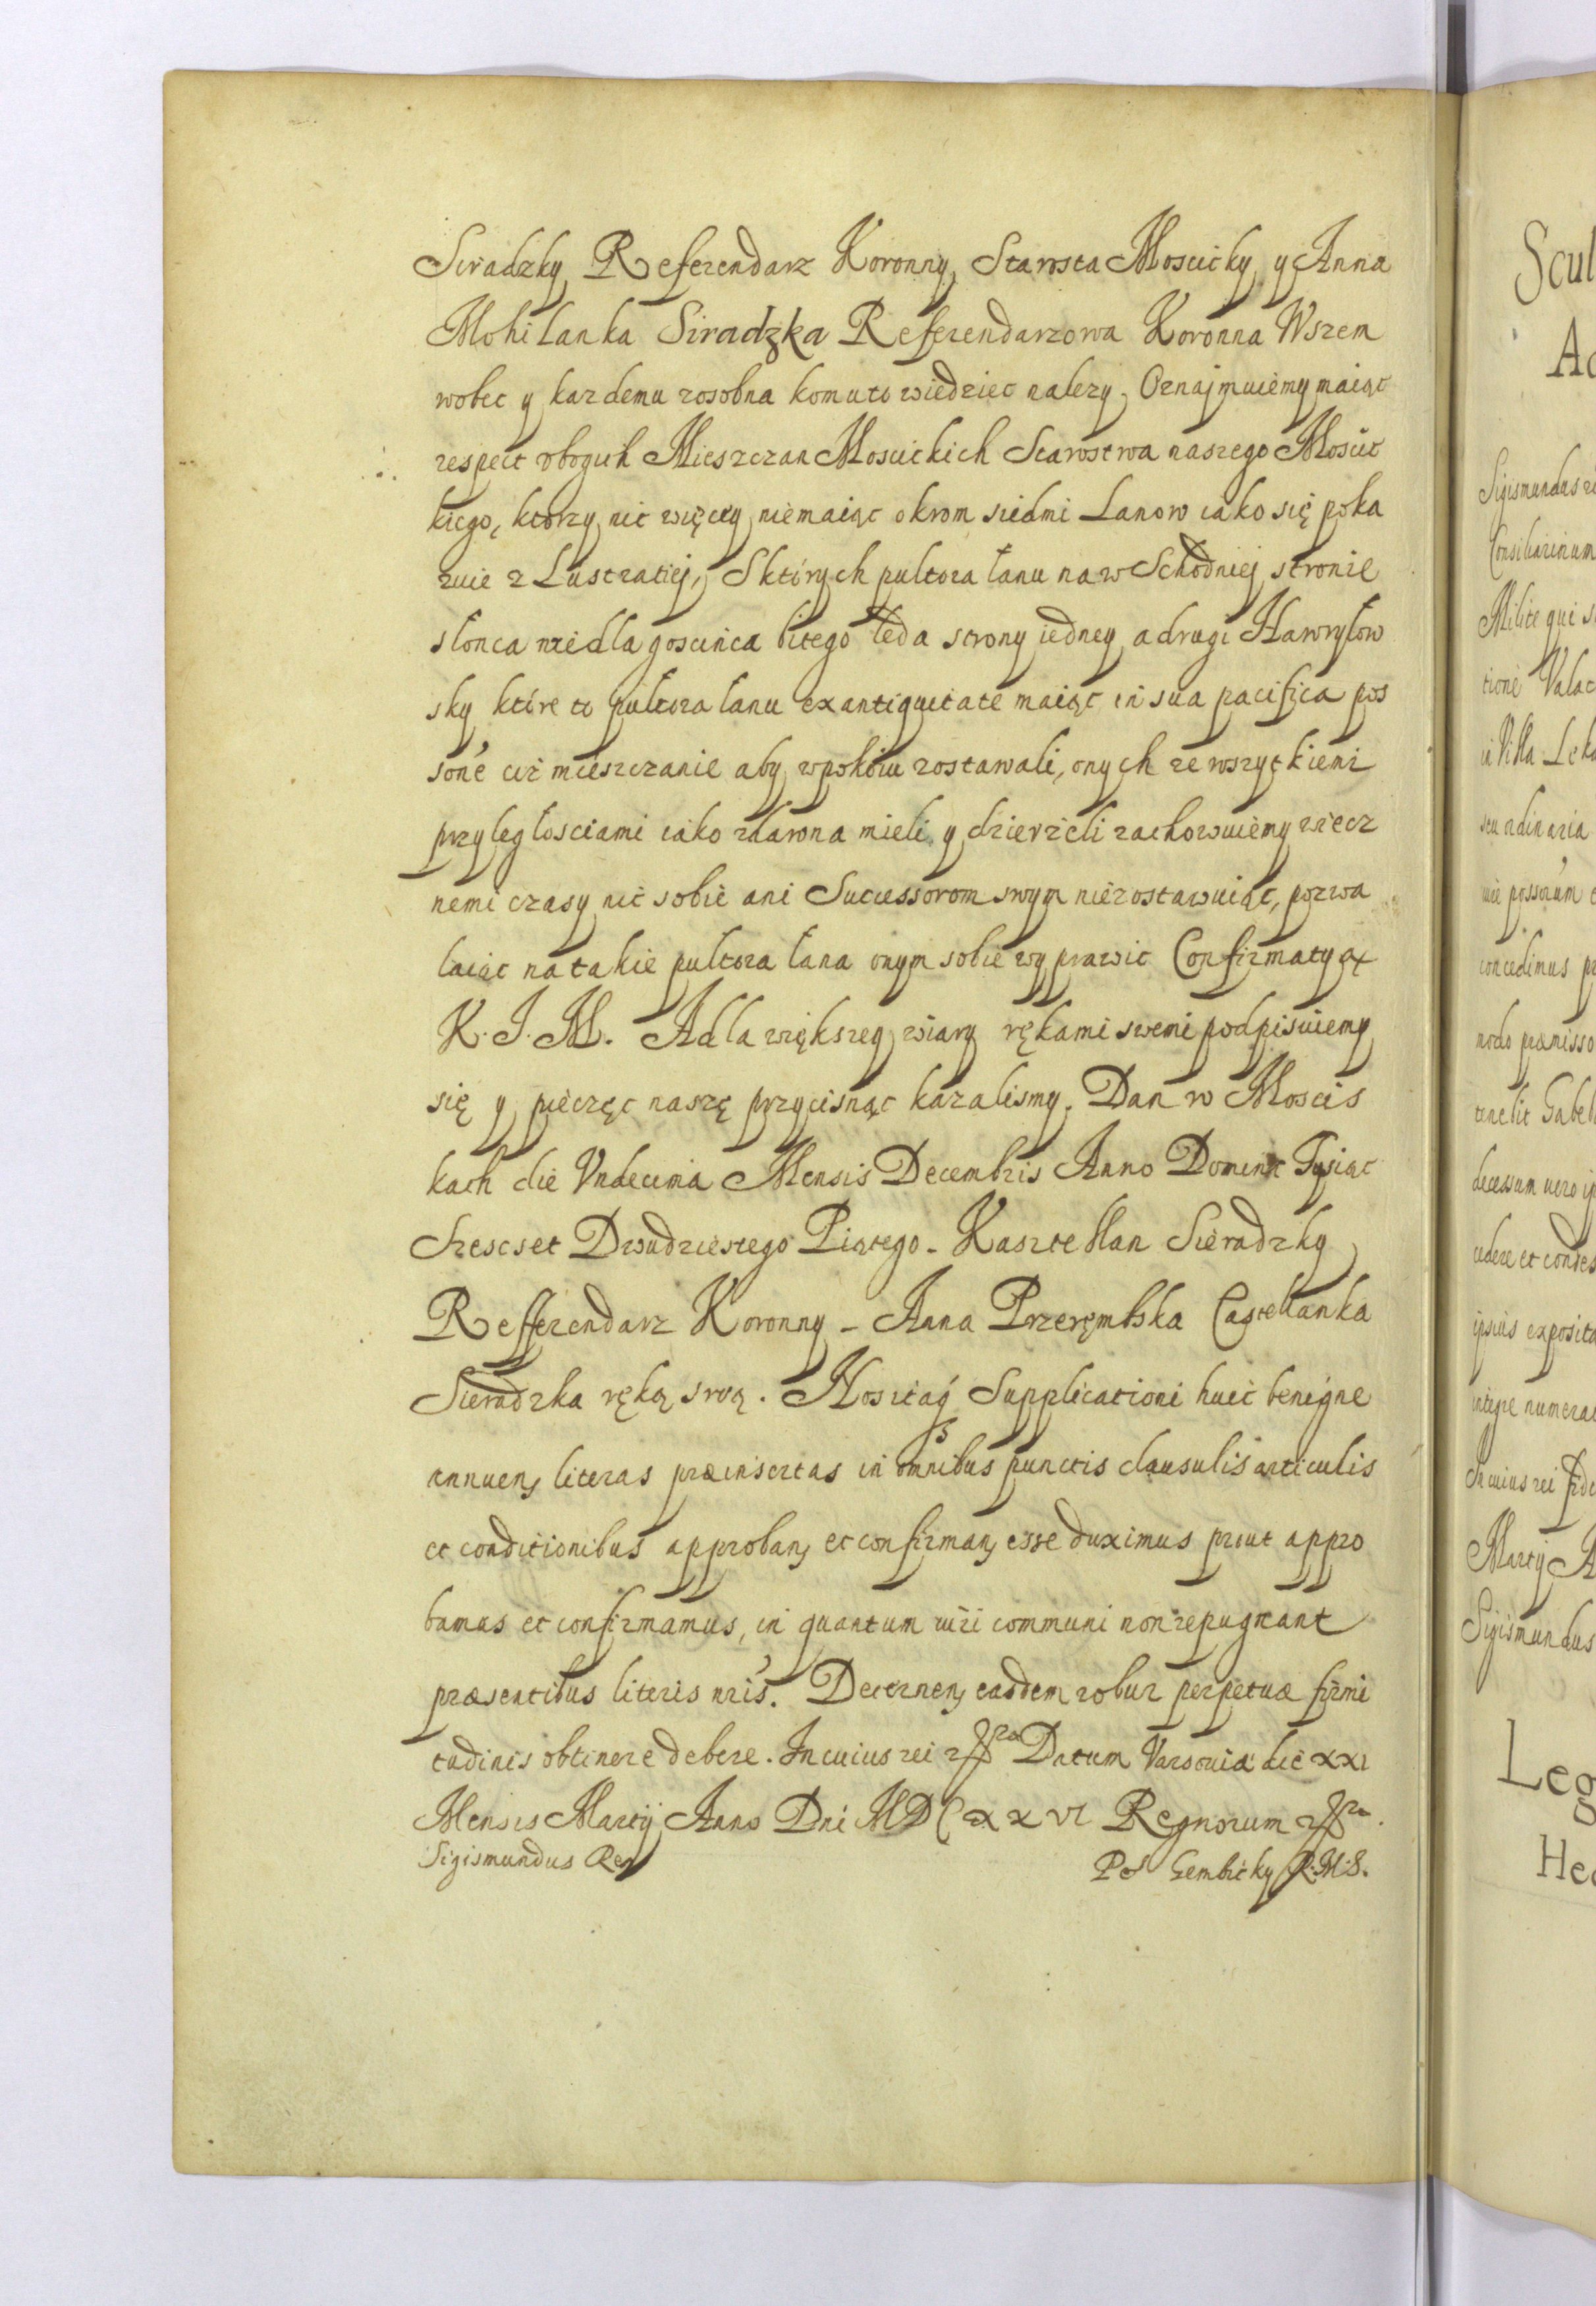 Siradzky Referendarz Koronny, Starosta Mosticky y Anna
Mohilanka Siradzka Referendarzowa Koronna Wszem
wobec y kazdemu zosobna komuto wiedziec nalezy. Oznajmuiemy maiąc
respect vbogich Mieszczan Moscickich Starostwa naszego Moscic
kiego, ktorzy nic więcey niemaiąc okrom siedmi Lanow iako się poka
zuie z Lustratiej, Sktórych pultora łanu na wschodniej stronie
słonca wedla goscinca bitego leda strony iedney, a drugi Hawryłow
sky które to pułtora łanu ex antiquitate maiąc in sua pacifica pos
sone ciz mieszczanie aby wpokoiu zostawali, onych ze wszytkiemi
przyległosciami iako zdawna mieli y dzierzeli zachowuiemy wiecz
nemi czasy nic sobie ani Successorom swym niezostawuiąc, pozwa
laiąc na takie pultora łana onym sobie wyprawic Confirmatyą
K. J. M. A dla większey wiary rękami swemi podpisuiemy
się y pieczęc naszę przycisnąc kazalismy. Dan w Moscis
kach die Undecima Mensis Decembris Anno Domini Tysiąc
Szescset Dwudziestego Piątego - Kasztellan Sieradzky
Refferendarz Koronny - Anna Przerębska Castellanka
Sieradzka ręką swą. Nos itaq Supplicationi huic benigne
annuen literas præinsertas in omnibus punctis clausulis articulis
et conditionibus approban et confirman esse duximus prout appro
bamus et confirmamus, in quantum iuri communi non repugnant
præsentibus literis nris. Decernen easdem robur perpetuæ firmi
tudinis obtinere debere. In cuius rei Datum Varsouiæ die XXI
Mensis Martij Anno Dni MDCXXVI Regnorum
Sigismundus Rex
Pet Gembicky R.M.S.
Scul
Sigismundus
Consiliarium
Milite qui
tione Valac
in Villa
concedimus
modo præmisso
decessum uero
cedere et condes
ipsius exposita
integre numera
In cuius rei fide
Martij A
Sigismundus
Leg